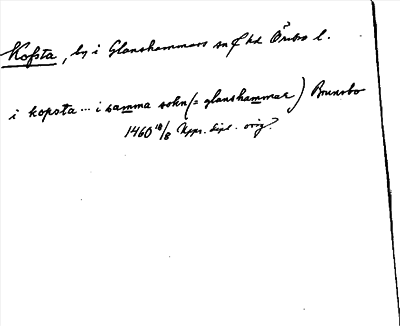 Kofsta, by i Glanshammars sn o hd Örebro l.
i kopsta... i samma sokn (= glanshammar) Brunsbo
1460 18/8 Uppr. dipl. orig?